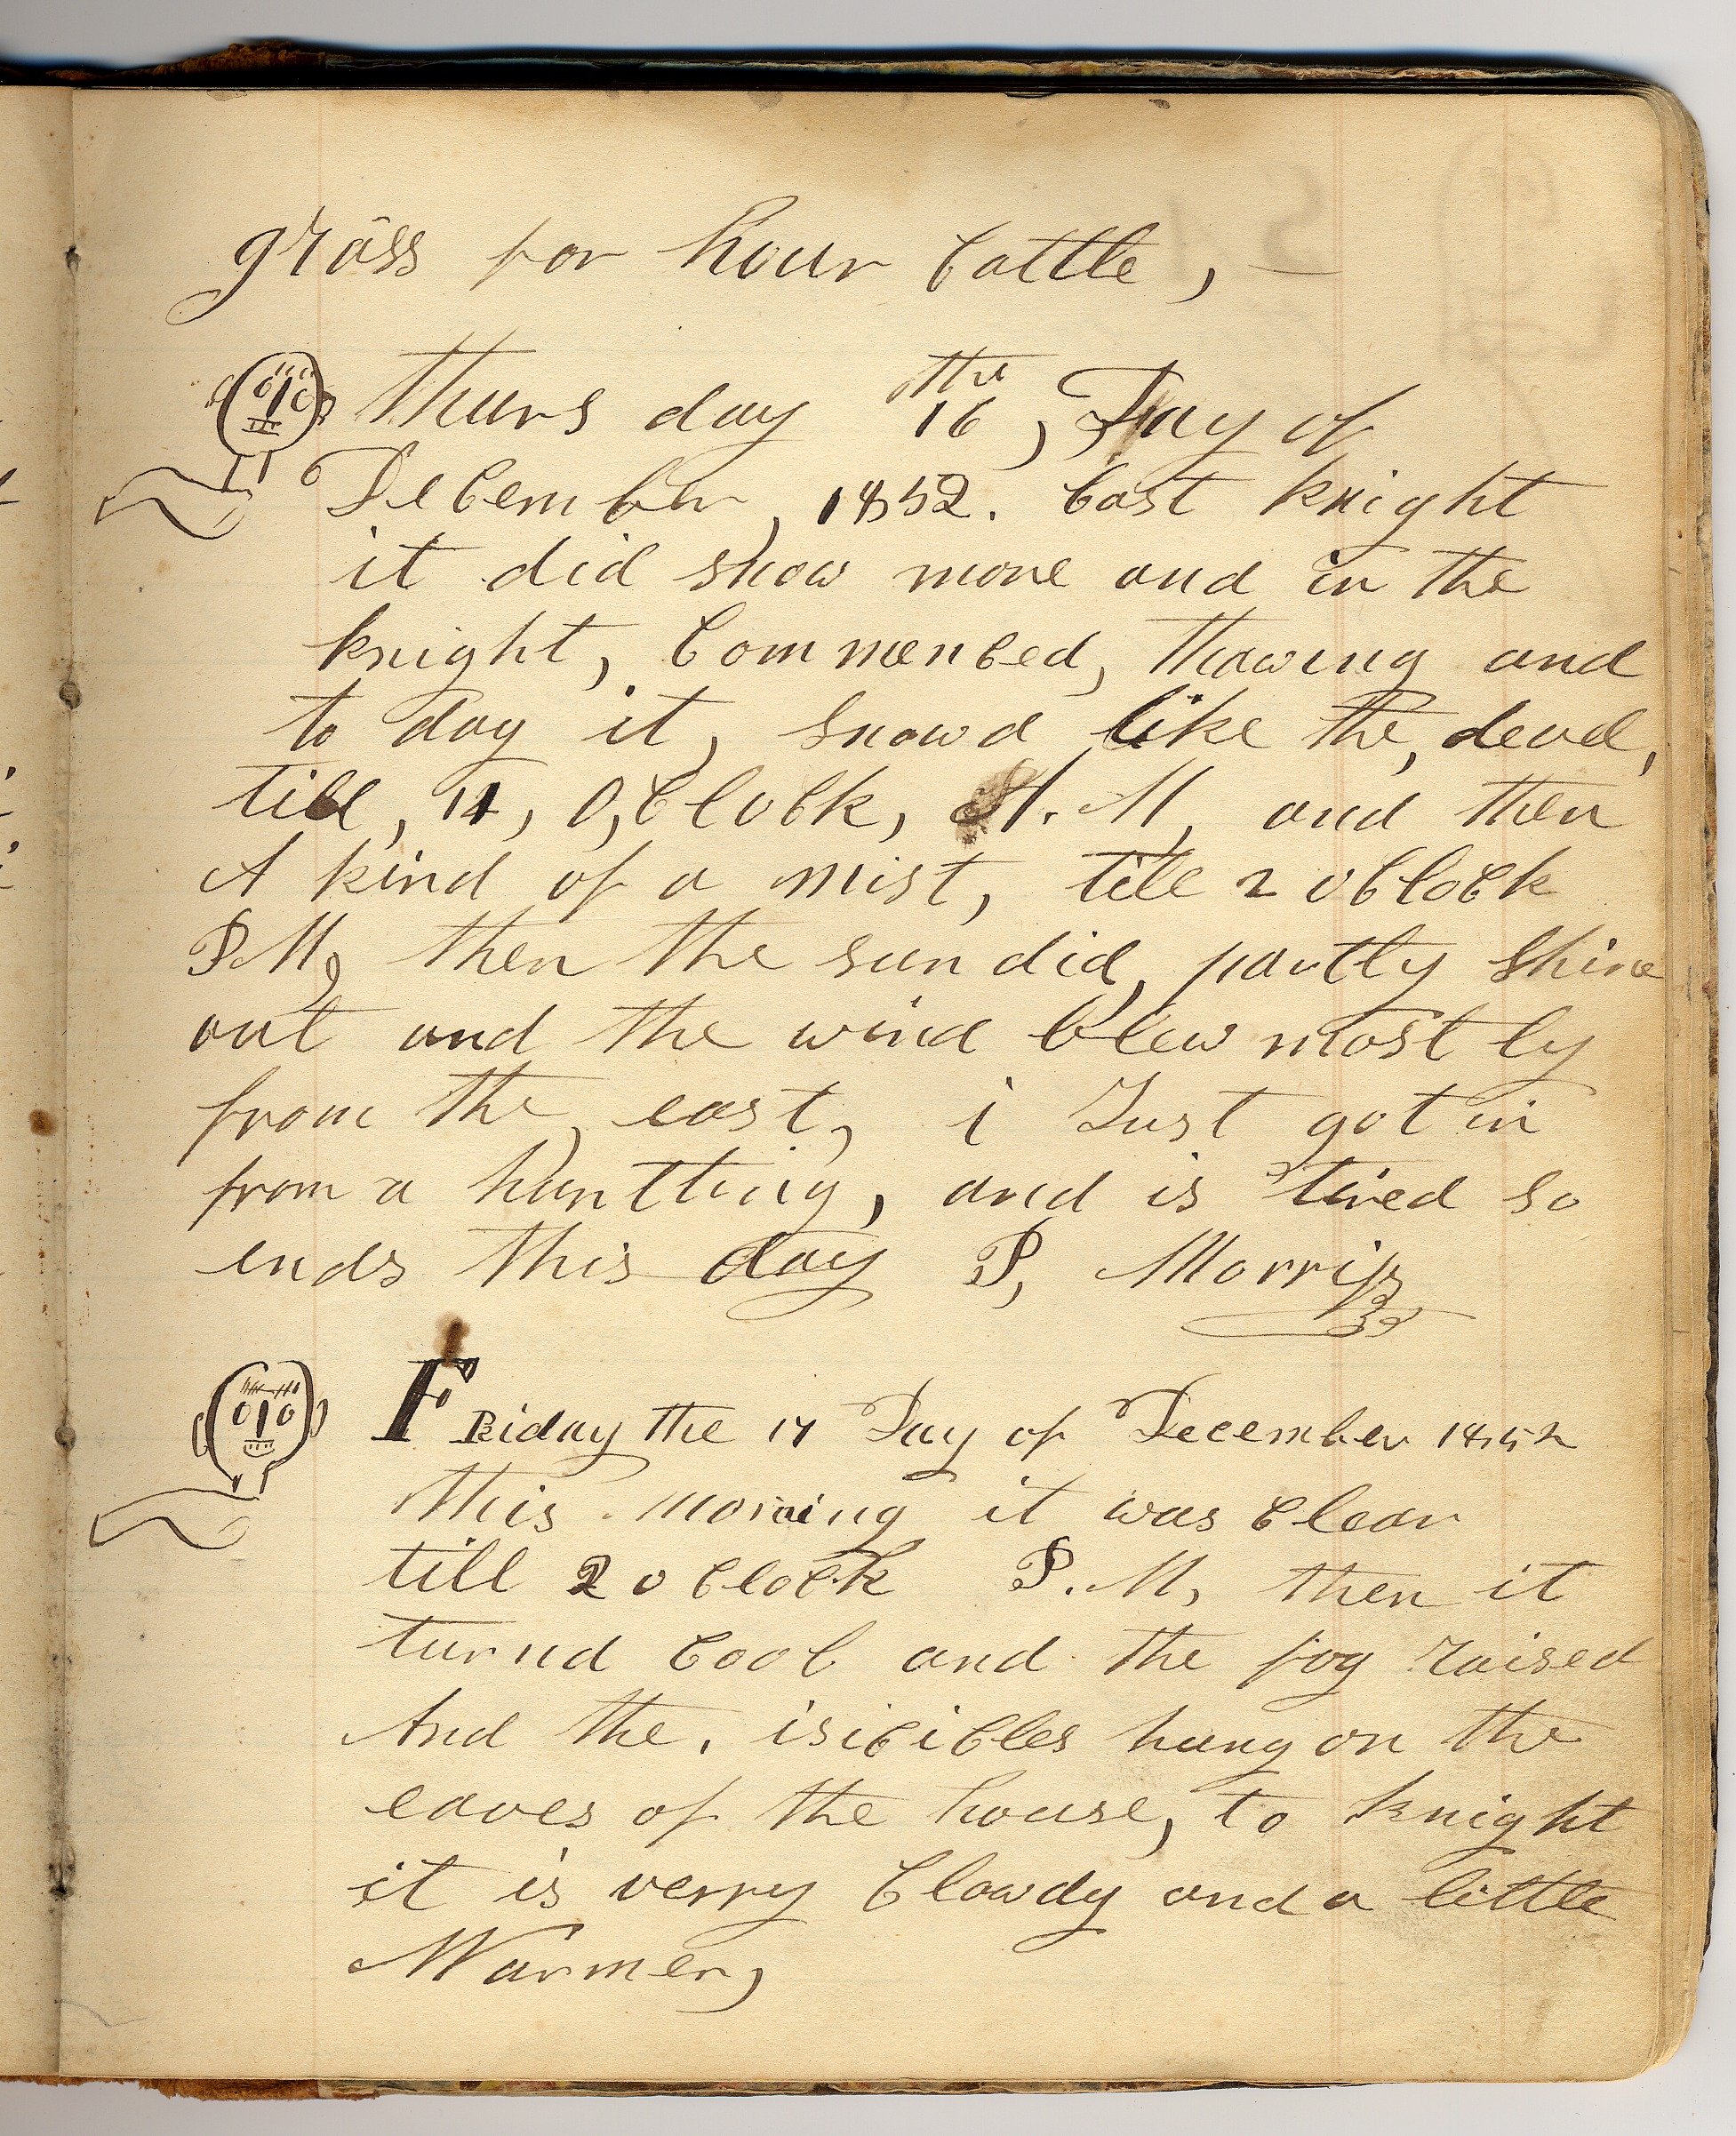 grass for hour Cattle, —
Thurs day 16the, Day of
December, 1852. Last knight
it did snow more and in the
knight, Commenced, thawing and
to day it, snowd like the, dead,
till, 11, O,Clock, A. M, and then
A kind of a mist, till 2 oClock
P.M, then the sun did, partly shine
out and the wind blew most ly
from the, east, i Just got in
from a huntting, and is tired so
ends this day P, Morriss
FRiday the 17 Day of December 1852
this morning it was Clear
till 2 oClock P. M, then it
turnd Cool and the fog raised
And the. isicicles hung on the
eaves of the house, to knight
it is verry Clowdy and a little
Warmer,